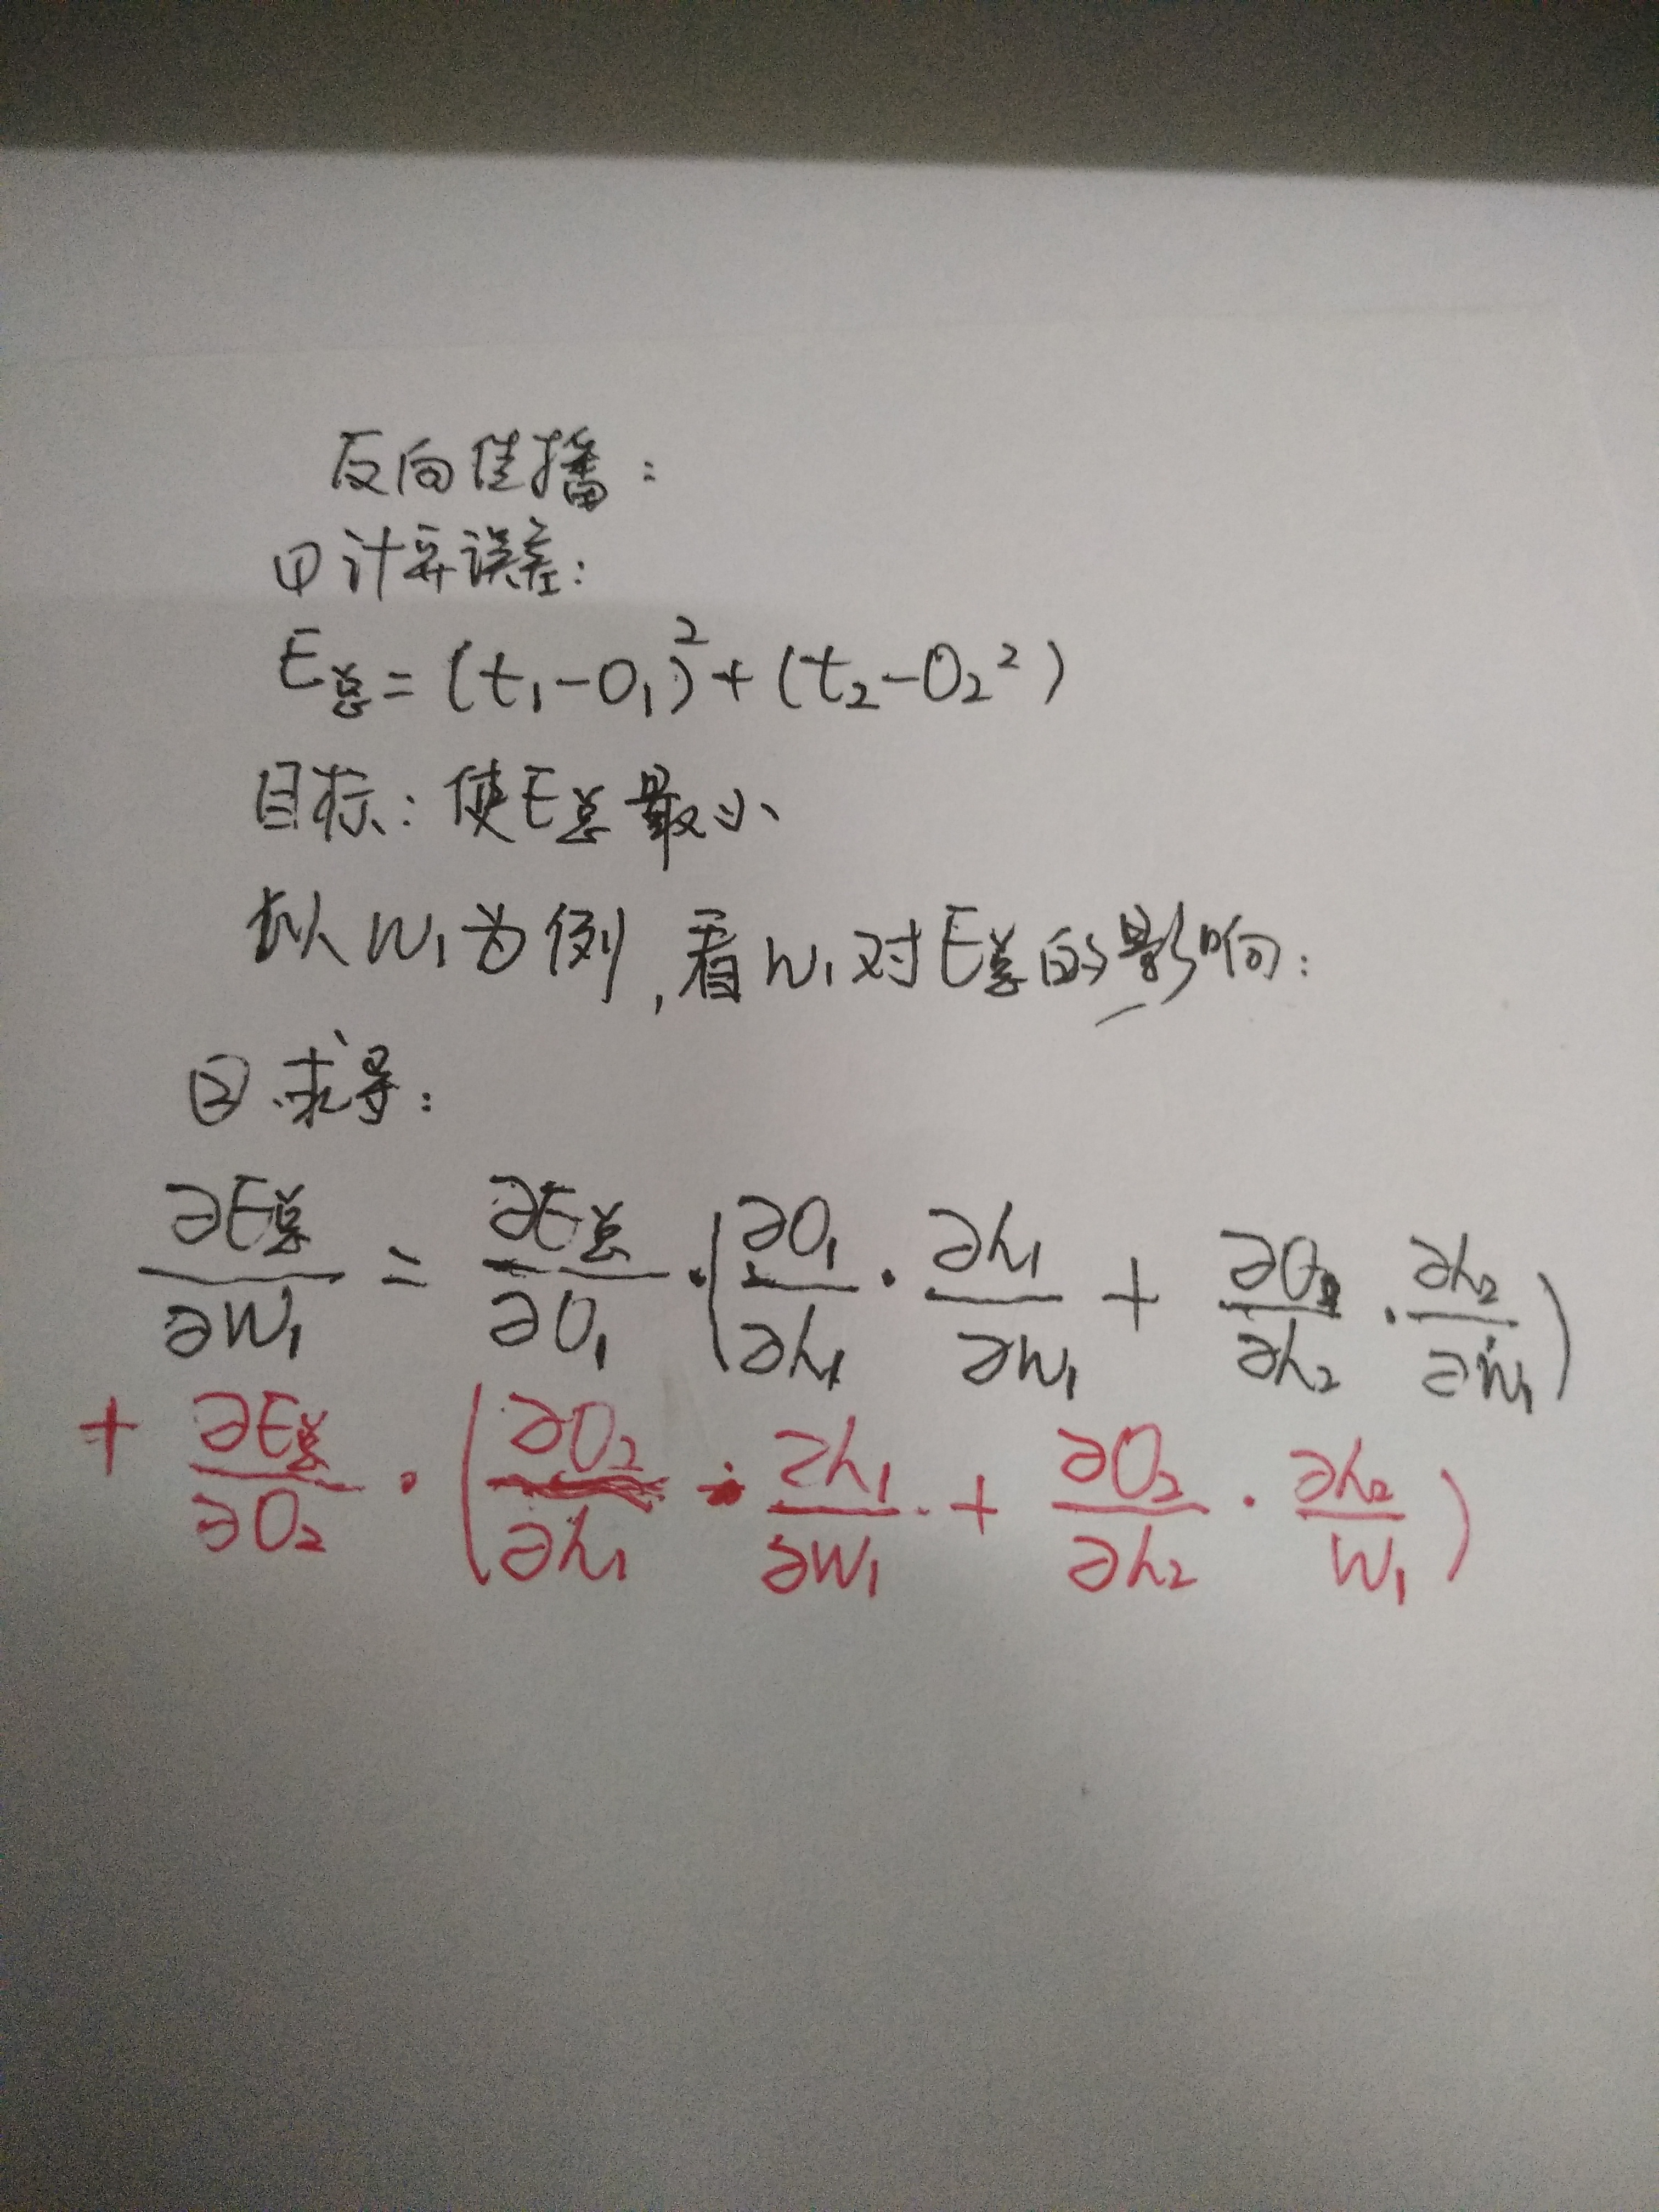 反向传播：
①计算误差：
E总=(t₁-O₁)²+(t₂-O₂²)
目标：使E总最小
以W₁为例，看W₁对E总的影响：
②求导：
∂E总/∂W₁ = ∂E总/∂O₁·(∂O₁/∂h₁·∂h₁/∂W₁ + ∂O₁/∂h₂·∂h₂/∂W₁)
+ ∂E总/∂O₂·(∂O₂/∂h₁·∂h₁/∂W₁ + ∂O₂/∂h₂·∂h₂/W₁)